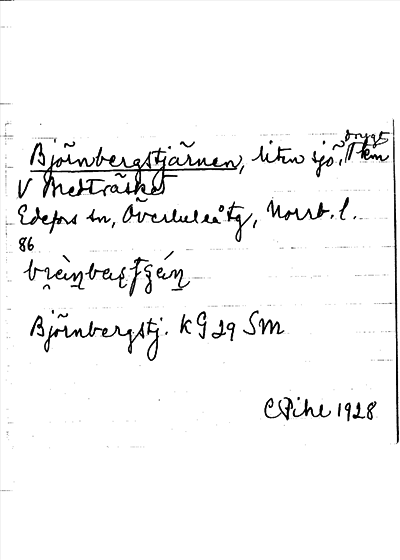 Björnbergstjärnen, liten sjö, drygt 1 km
V Medträsket
Edefors sn, Överluleå tg, Norrb. l.
86
Björnbergstj. KG 29 SM
C Pihl 1928